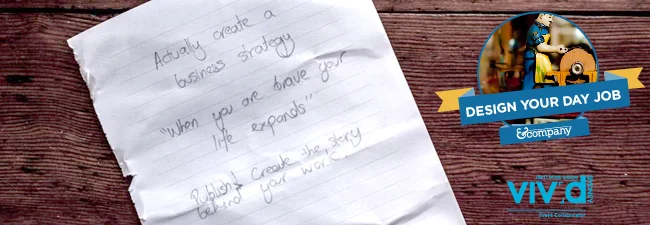 Actually create a
business strategy
"When you are brave your
life expands"
Publish! Create the story
behind your work.
DESIGN YOUR DAY JOB
&company
vivid
SYDNEY
Event Collaborator